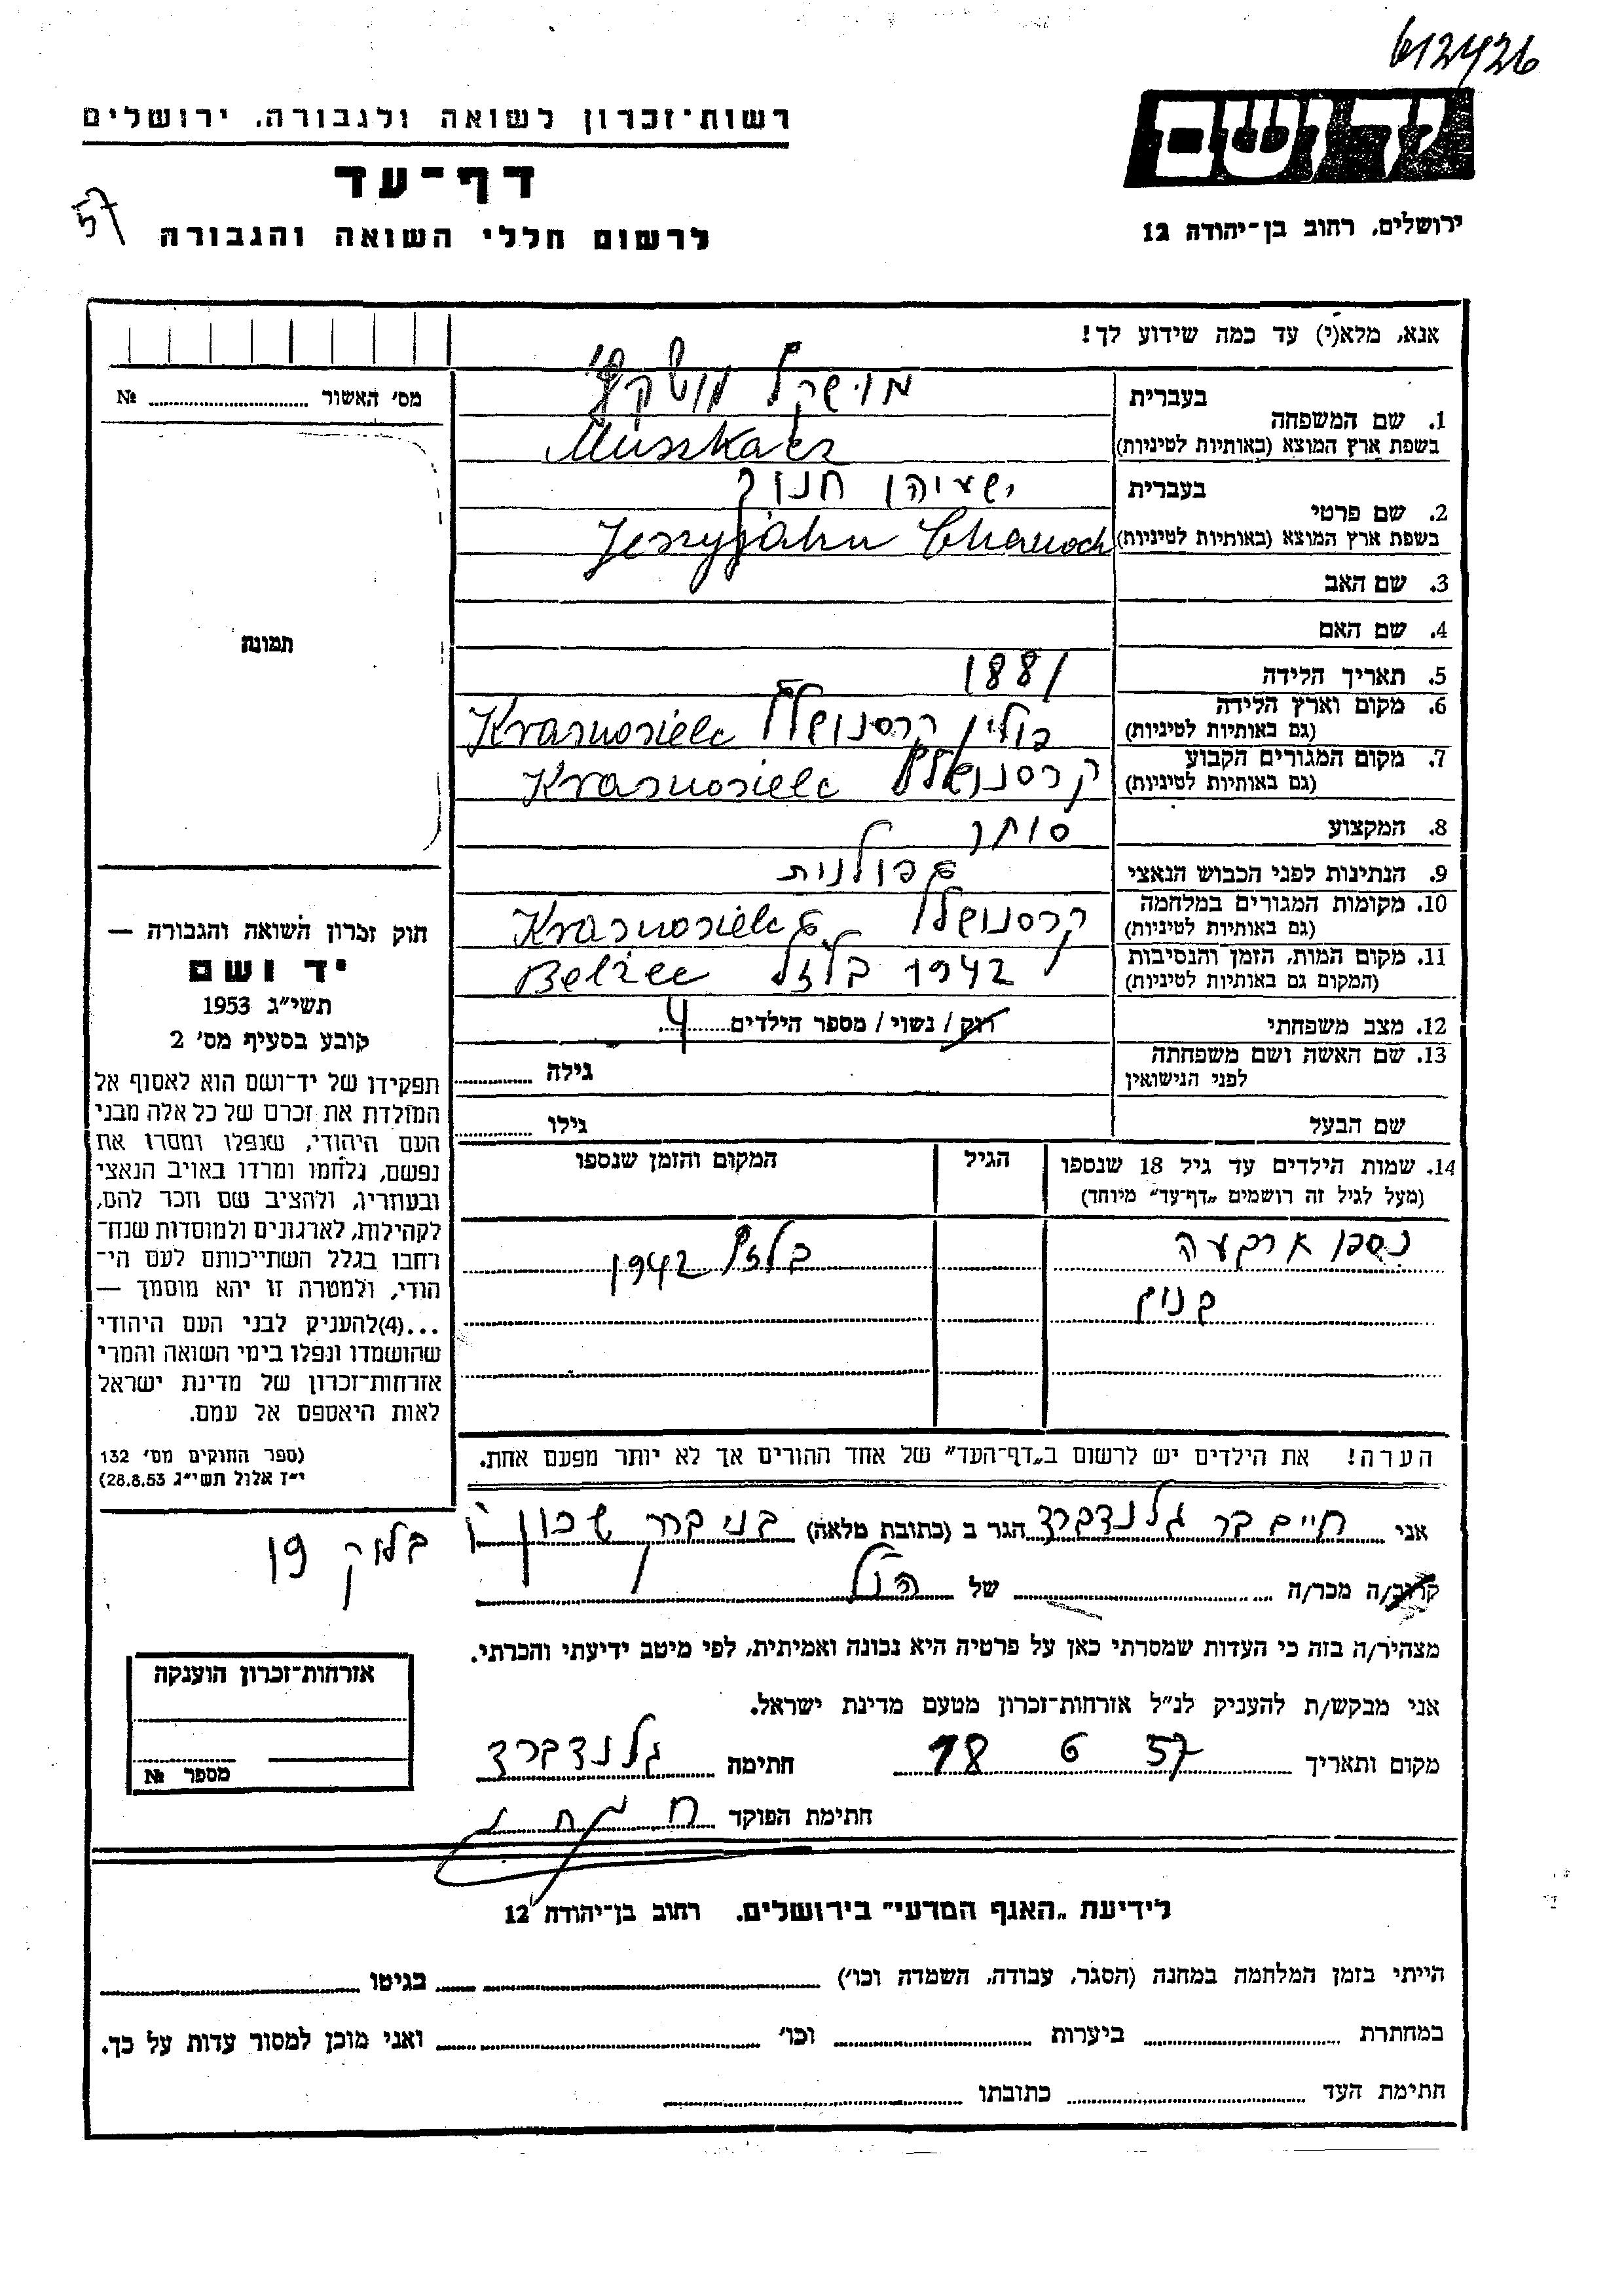 612426
יד ושם
רשות־זכרון לשואה ולגבורה, ירושלים
דף־עד
57
לרשום חללי השואה והגבורה
ירושלים, רחוב בן־יהודה 12
אנא, מלא(י) עד כמה שידוע לך!
מס׳ האשור № 
תמונה
1. שם המשפחה בעברית
בשפת ארץ המוצא (באותיות לטיניות)
2. שם פרטי בעברית ישעיהו חנוך
בשפת ארץ המוצא (באותיות לטיניות) Jeszyjahu Chanoch
3. שם האב
4. שם האם
5. תאריך הלידה 1881
6. מקום וארץ הלידה
(גם באותיות לטיניות) פולין קרסנושלץ Krasnosielc
7. מקום המגורים הקבוע
(גם באותיות לטיניות) קרסנושלץ Krasnosielc
8. המקצוע סוחר
9. הנתינות לפני הכבוש הנאצי פולנית
10. מקומות המגורים במלחמה
(גם באותיות לטיניות) קרסנושלץ Krasnosielc
11. מקום המות, הזמן והנסיבות
(המקום גם באותיות לטיניות) 1942 Belzec
12. מצב משפחתי רוק / נשוי / מספר הילדים 4
13. שם האשה ושם משפחתה
לפני הנישואין גילה
שם הבעל גילו
14. שמות הילדים עד גיל 18 שנספו הגיל המקום והזמן שנספו
(מעל לגיל זה רושמים „דף־עד” מיוחד)
נספו ארבעה 1942
בנים
הערה! את הילדים יש לרשום ב„דף־העד” של אחד ההורים אך לא יותר מפעם אחת.
חוק זכרון השואה והגבורה —
יד ושם
תשי״ג 1953
קובע בסעיף מס׳ 2
תפקידו של יד־ושם הוא לאסוף אל
המולדת את זכרם של כל אלה מבני
העם היהודי, שנפלו ומסרו את
נפשם, נלחמו ומרדו באויב הנאצי
ובעוזריו, ולהציב שם וזכר להם,
לקהילות, לארגונים ולמוסדות שנח־
רחבו בגלל השתייכותם לעם הי־
הודי, ולמטרה זו יהא מוסמך —
...(4)להעניק לבני העם היהודי
שהושמדו ונפלו בימי השואה והמרי
אזרחות־זכרון של מדינת ישראל
לאות היאספם אל עמם.
(ספר החוקים מס׳ 132
י״ז אלול תשי״ג 28.8.53)
אני חיים בר גלנדברד הגר ב (כתובת מלאה) בני ברק שכון ו בלוק 19
קרוב/ה מכר/ה של הנ״ל
מצהיר/ה בזה כי העדות שמסרתי כאן על פרטיה היא נכונה ואמיתית, לפי מיטב ידיעתי והכרתי.
אני מבקש/ת להעניק לנ״ל אזרחות־זכרון מטעם מדינת ישראל.
מקום ותאריך 18 6 57 חתימה גלנדברד
חתימת הפוקד
אזרחות־זכרון הוענקה
מספר №
לידיעת „האגף המדעי” בירושלים. רחוב בן־יהודה 12
הייתי בזמן המלחמה במחנה (הסגר, עבודה, השמדה וכו׳) בגיטו
במחתרת ביערות וכו׳ ואני מוכן למסור עדות על כך.
חתימת העד כתובתו